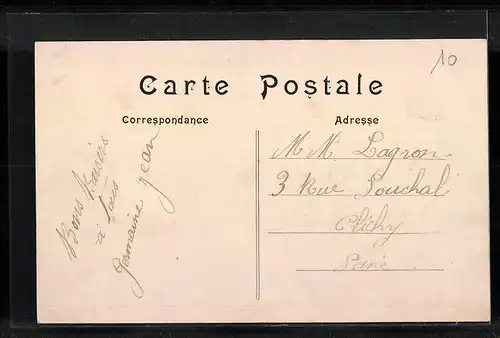 10
Carte Postale
Correspondance
Adresse
Bons Baisers
à tous
Germaine Jean
M M. Lagron
3 Rue Souchal
Clichy
Seine